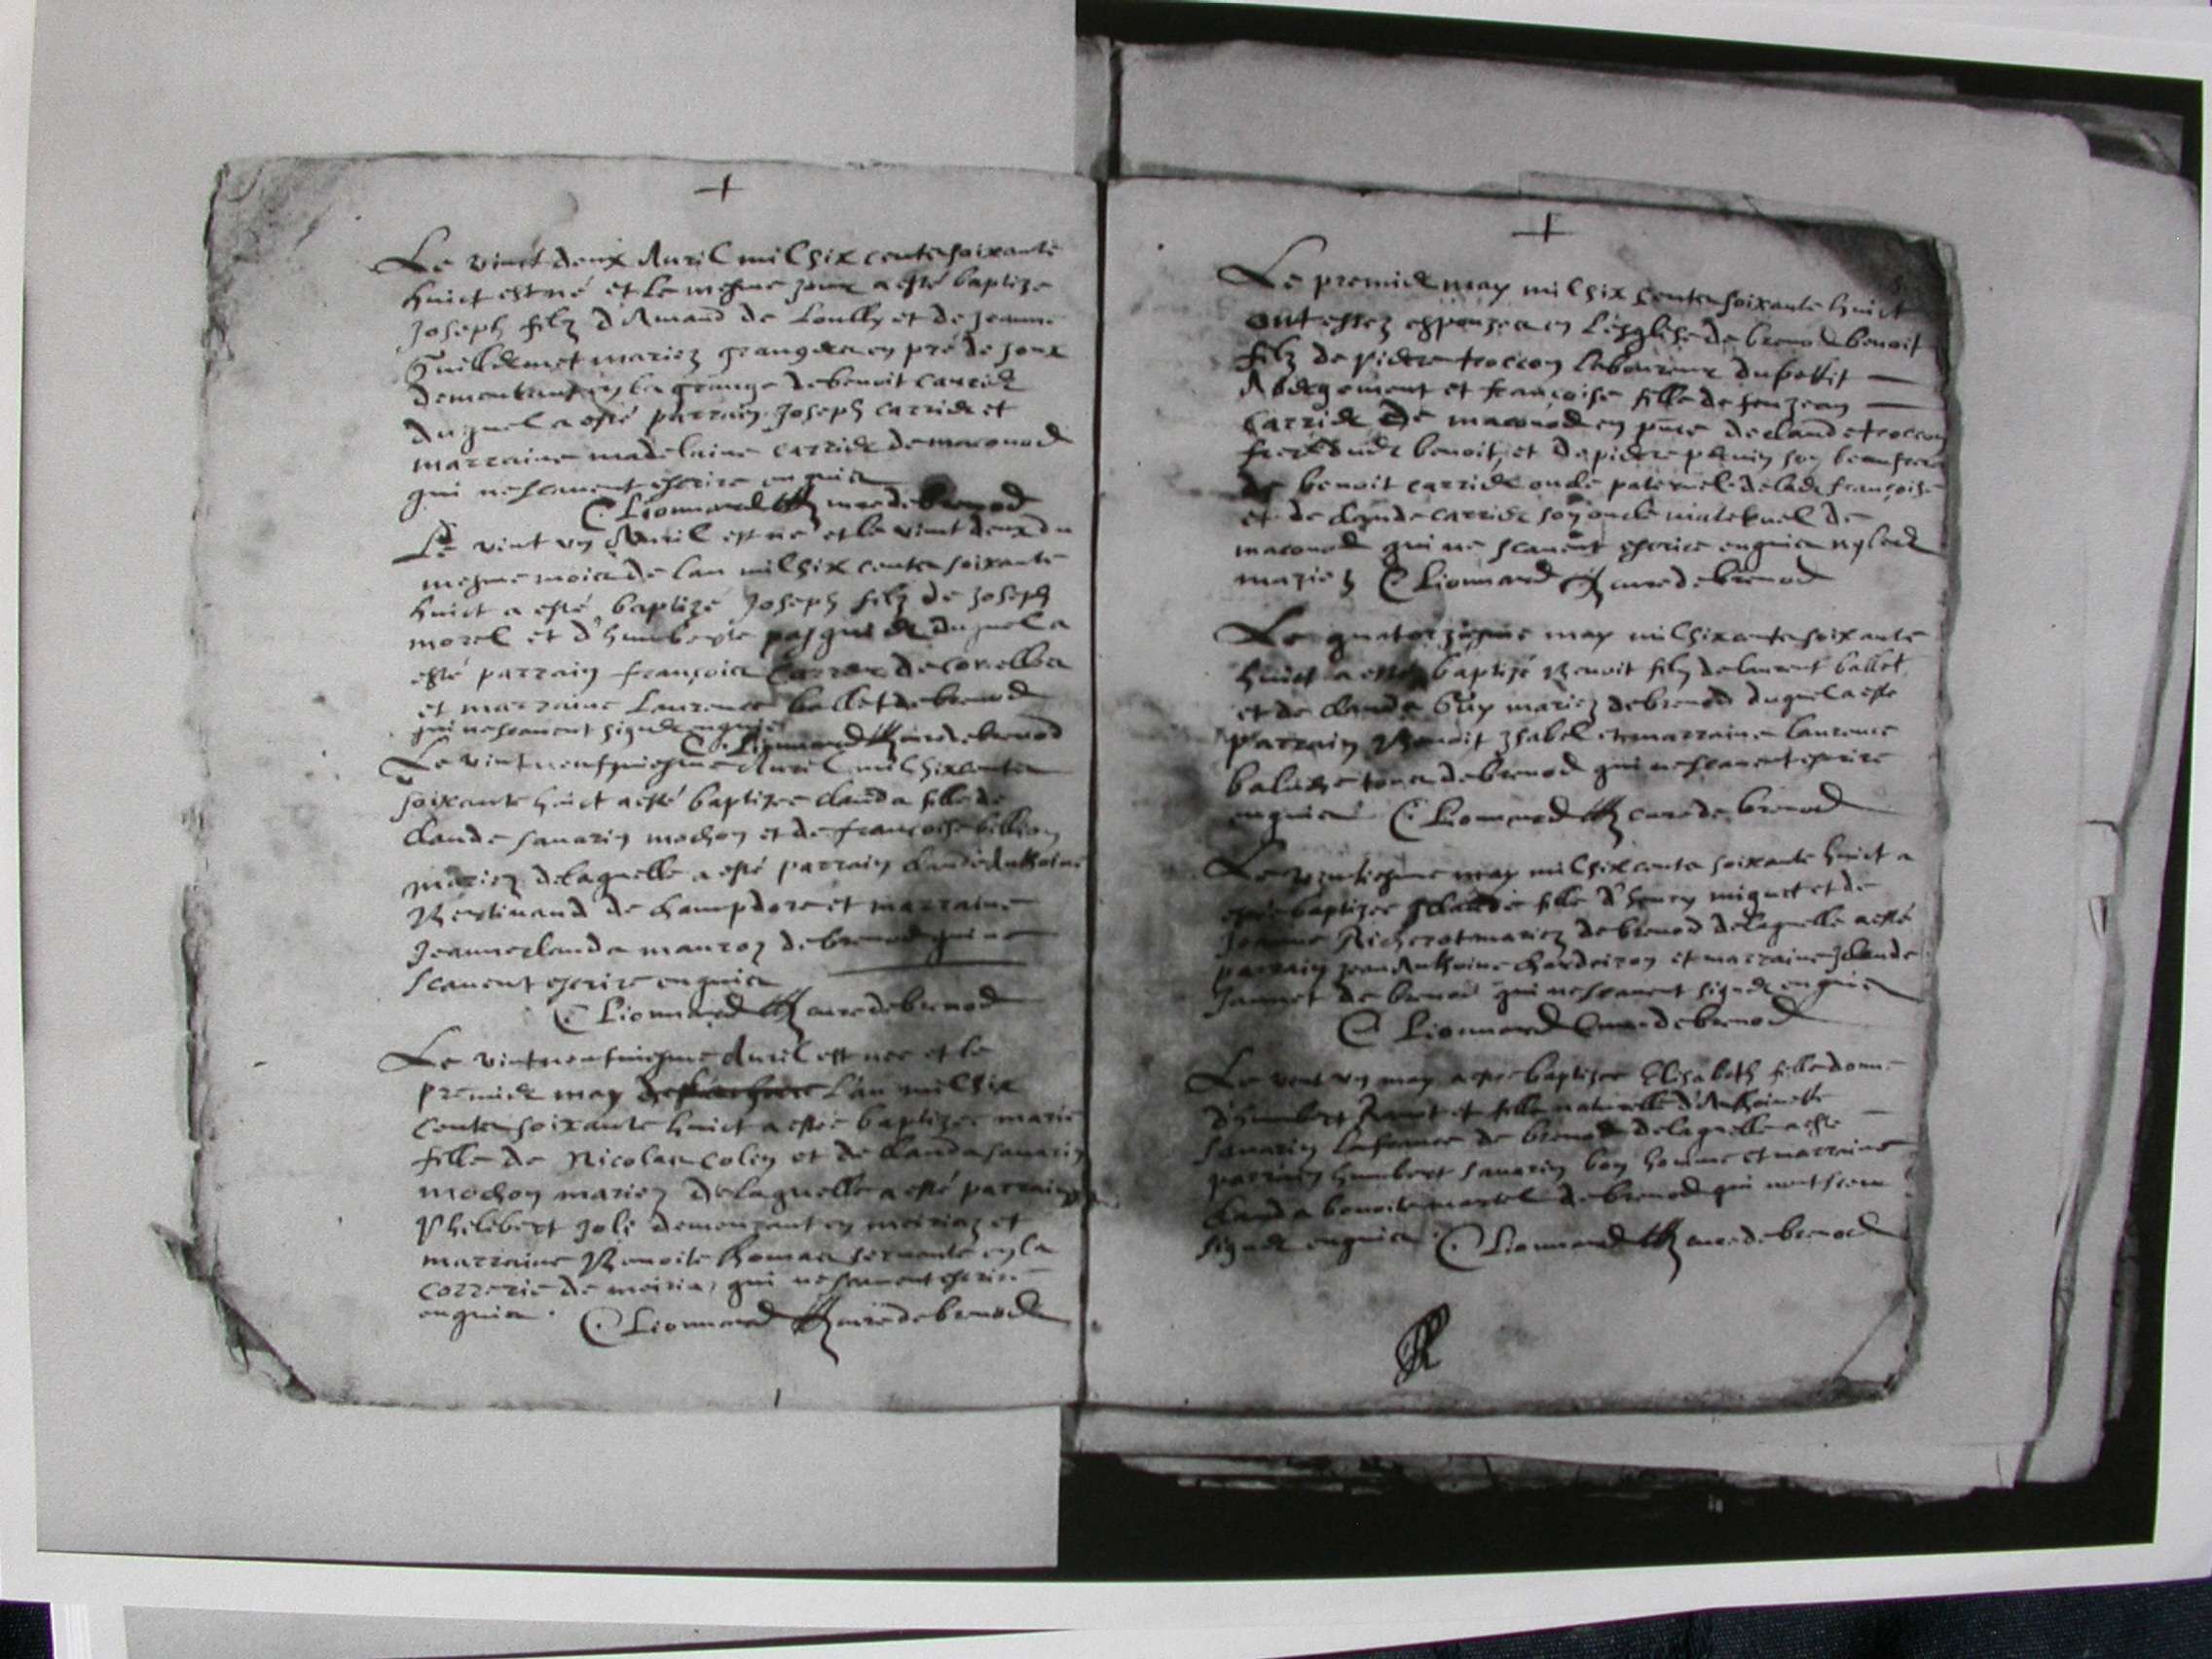 +
Le vint deux Avril mil six cents soixante
huict est né et le mesme jour a esté baptize
Joseph filz d'Amand de Loully et de Jeanne
Guillermet mariez grangers en pré de joux
demeurant en la grange de benoit carrier
duquel a esté parrain Joseph carrier et
marraine madelaine carrier de maconod
qui ne scavent escrire enquis
C. Lionnard curé de brenod
Le vint un Avril est né et le vint deux du
mesme mois de lan mil six cents soixante
huict a esté baptizé Joseph filz de Joseph
morel et d'humberte pasquier duquel a
esté parrain françois carrier de corcelles
et marraine Laurence ballet de brenod
qui ne scavent signer enquis
C. Lionnard curé de brenod
Le vint neufviesme Avril mil six cents
soixante huict a esté baptizee clauda fille de
claude savarin mochon et de françoise billion
mariez delaquelle a esté parrain claude Anthoine
de champdore et marraine
Jeanne clauda de brenod qui ne
scavent escrire enquis
C. Lionnard curé de brenod
Le vint neufviesme Avril est nee et le
premier may L'an mil six
cents soixante huict a estée baptizee marie
fille de Nicolas colin et de clauda savarin
mochon mariez delaquelle a esté parrain
Philibert Joli demeurant en meiriaz et
marraine Benoite thomas servante en la
correrie de meiria, qui ne scavent escrire
enquis. C. Lionnard curé de brenod
+
Le premier may mil six cents soixante huict
ont estez espousez en L'esglise de brenod benoit
filz de pierre troccon laboureur du petit
Abergement et françoise fille de feu jean
carrier de maconod en pnce de claude troccon
frere dudt benoit, et de pierre son beaufrere
de benoit carrier oncle paternel de lade françoise
et de claude carrier son oncle maternel de
maconod qui ne scavent escrire enquis ny lesd
mariez C. Lionnard curé de brenod
Le quatorziesme may mil six cents soixante
huict a esté baptizé Benoit filz de laurent ballet
et de clauda Guy mariez de brenod duquel a este
parrain Benoit et marraine laurence
tous de brenod qui ne scavent escrire
enquis C. Lionnard curé de brenod
Le vintiesme may mil six cents soixante huict a
estée baptizee fille d'henry miguet et de
Jeanne Richerot mariez de brenod delaquelle a esté
parrain jean Anthoine et marraine
Jannet de brenod qui ne scavent signer enquis
C. Lionnard curé de brenod
Le vint un may a esté baptizee Elizabeth fille donn
d'humbert et fille naturelle d'Anthoinette
savarin de brenod delaquelle a esté
parrain humbert savarin bon homme et marraine
clauda benoite martel de brenod qui n'ont sceu
signer enquis. C. Lionnard curé de brenod